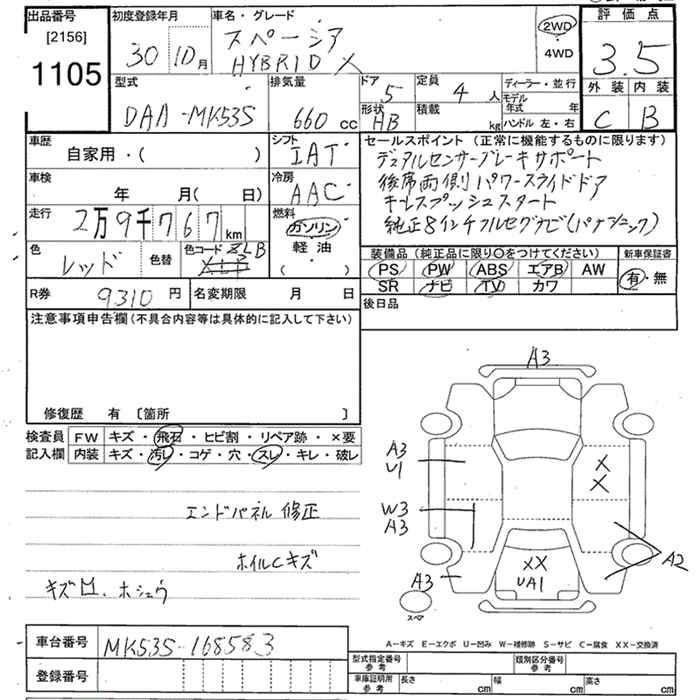 出品番号
[2156]
1105
初度登録年月
30 10月
車名・グレード
スペーシア
HYBRID X
2WD
・
4WD
評価点
3.5
外装 内装
C B
型式
DAA-MK53S
排気量
660 cc
ドア 5
形状 HB
定員 4 人
積載 kg
ディーラー・並行
モデル年式 年
ハンドル 左・右
車歴
自家用・( )
シフト
IAT
車検
年 月(日)
冷房
AAC
走行
2万9千767km
燃料
ガソリン
軽油
・( )
色
レッド
色替
色コード ZLB
R券 9310円
名変期限 月 日
セールスポイント (正常に機能するものに限ります)
デュアルセンサーブレーキサポート
後席両側パワースライドドア
キーレスプッシュスタート
純正8インチフルセグナビ(パナソニック)
装備品 (純正品に限り○をつけてください)
新車保証書
PS PW ABS エアB AW
SR ナビ TV カワ
有・無
後日品
注意事項申告欄(不具合内容等は具体的に記入して下さい)
修復歴 有 [箇所 ]
検査員 FW キズ・飛石・ヒビ割・リペア跡・×要
記入欄 内装 キズ・汚レ・コゲ・穴・スレ・キレ・破レ
エンドパネル修正
ホイルCキズ
キズ凹、ホシュウ
A3
A3
U1
X
X
W3
A3
A2
A3
XX
UA1
スペア
A-キズ E-エクボ U-凹み W-補修跡 S-サビ C-腐食 XX-交換済
車台番号 MK53S-168583
登録番号
型式指定番号
参考
類別区分番号
参考
車庫証明用
参考
長さ cm 幅 cm 高さ cm